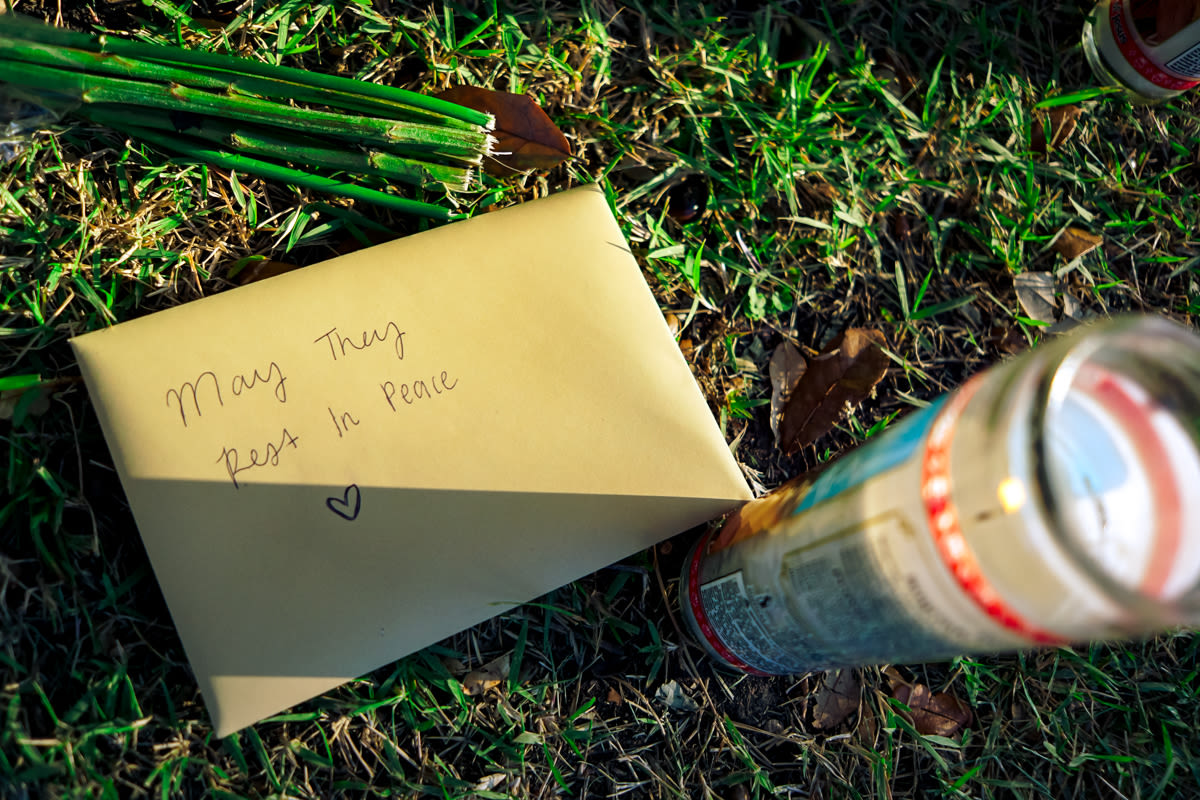 May They
Rest In Peace